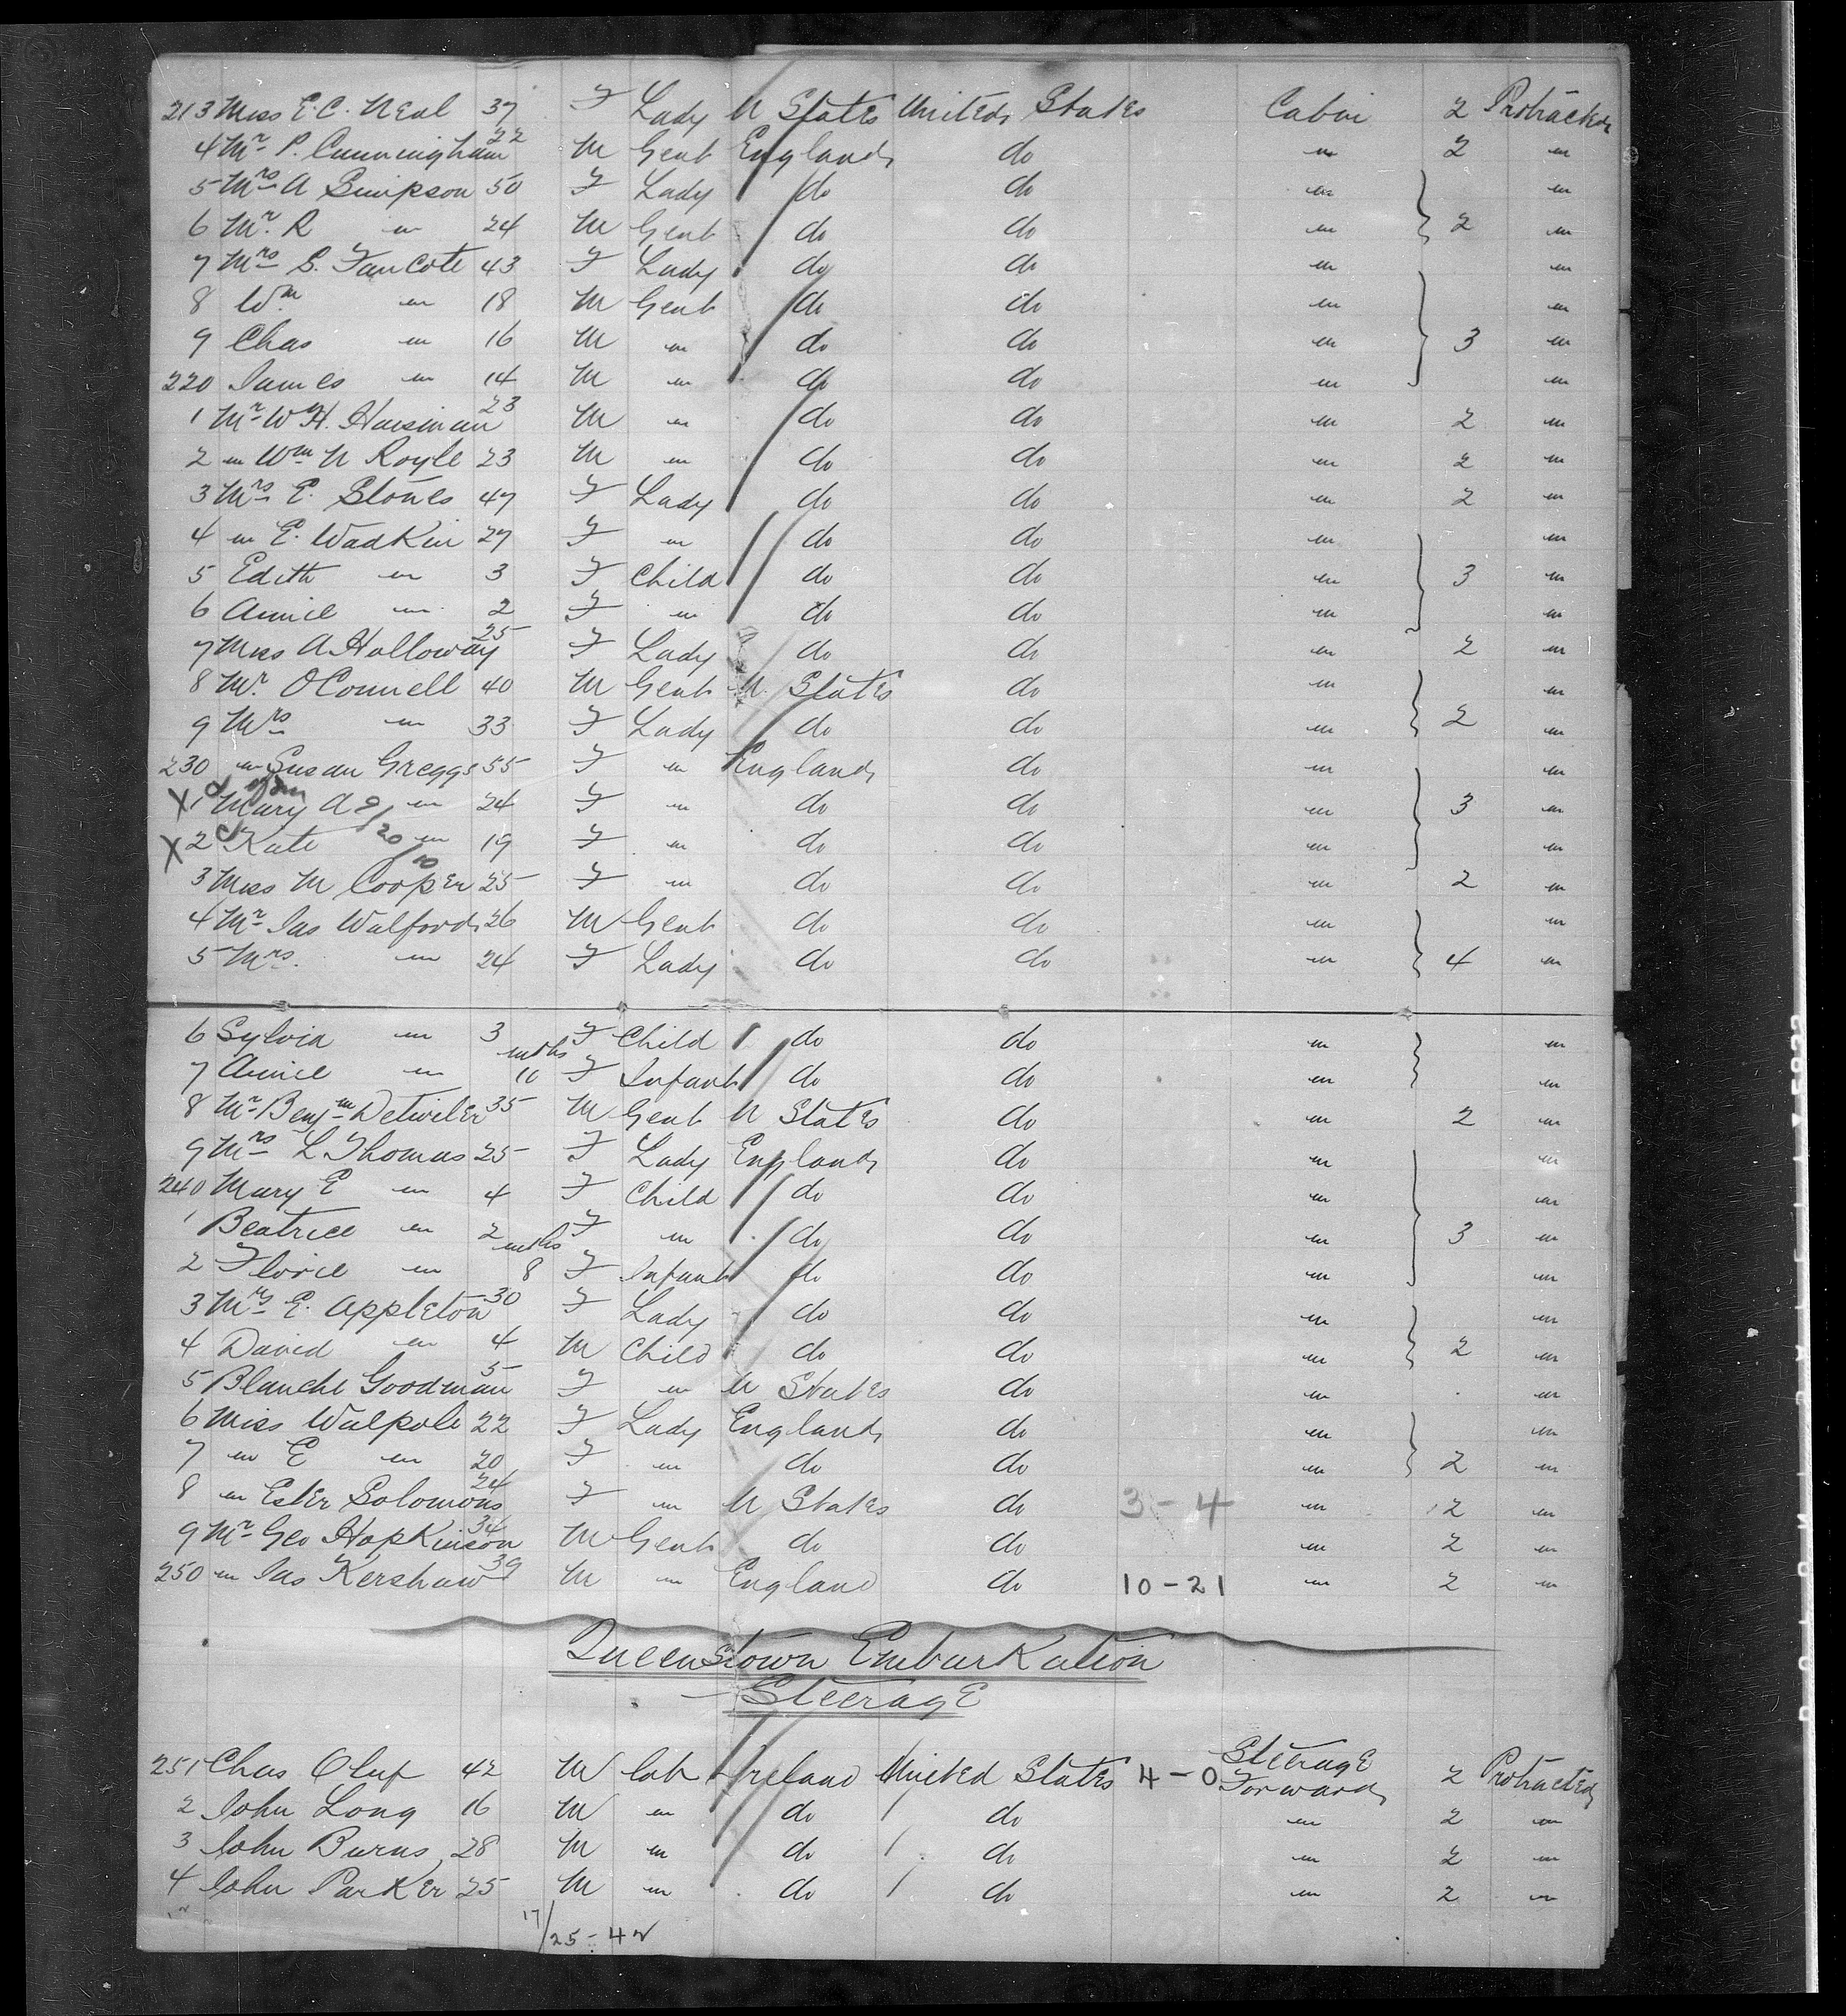 213 Miss E.C. Neal 37 F Lady U States United States Cabin 2 Protracted
4 Mr P. Cunningham 22 M Gent England do " 2 "
5 Mrs A Simpson 50 F Lady do do " "
6 Mr. R " 24 M Gent do do " 2 "
7 Mrs S. Fancote 43 F Lady do do " "
8 Wm " 18 M Gent do do " "
9 Chas " 16 M " do do " 3 "
220 James " 14 M " do do " "
1 Mr Wm H. Hausman 23 M " do do " 2 "
2 " Wm N Royle 23 M " do do " 2 "
3 Mrs E. Stones 47 F Lady do do " 2 "
4 " E. Wadkin 27 F " do do " "
5 Edith " 3 F Child do do " 3 "
6 Annie " 2 F " do do " "
7 Miss A Holloway 25 F Lady do do " 2 "
8 Mr. OConnell 40 M Gent U. States do " "
9 Mrs " 33 F Lady do do " 2 "
230 " Susan Greggs 55 F " England do " "
X 1 Mary A " 24 F " do do " 3 "
X 2 Kate " 19 F " do do " "
3 Miss M Cooper 25 F " do do " 2 "
4 Mr Jas Walford 26 M Gent do do " "
5 Mrs. " 24 F Lady do do " 4 "
6 Sylvia " 3 F Child do do " "
7 Annie " mths 10 F Infant do do " "
8 Mr Benjm Detwiler 35 M Gent U States do " 2 "
9 Mrs L Thomas 25 F Lady England do " "
240 Mary E " 4 F Child do do " "
1 Beatrice " 2 F " do do " 3 "
2 Florie " mths 8 F Infant do do " "
3 Mrs E. Appleton 30 F Lady do do " "
4 David " 4 M Child do do " 2 "
5 Blanche Goodman 5 F " U States do " "
6 Miss Walpole 22 F Lady England do " "
7 " E " 20 F " do do " 2 "
8 " Ester Solomons 24 F " U States do 3-4 " 2 "
9 Mr Geo Hopkinson 34 M Gent do do " 2 "
250 " Jas Kershaw 39 M " England do 10-21 " 2 "
Queenstown Embarkation
Steerage
251 Chas Oluf 42 M Lab Ireland United States 4-0 Steerage Forward 2 Protracted
2 John Long 16 M " do do " 2 "
3 John Burns 28 M " do do " 2 "
4 John Parker 25 M " do do " 2 "
17/25-42